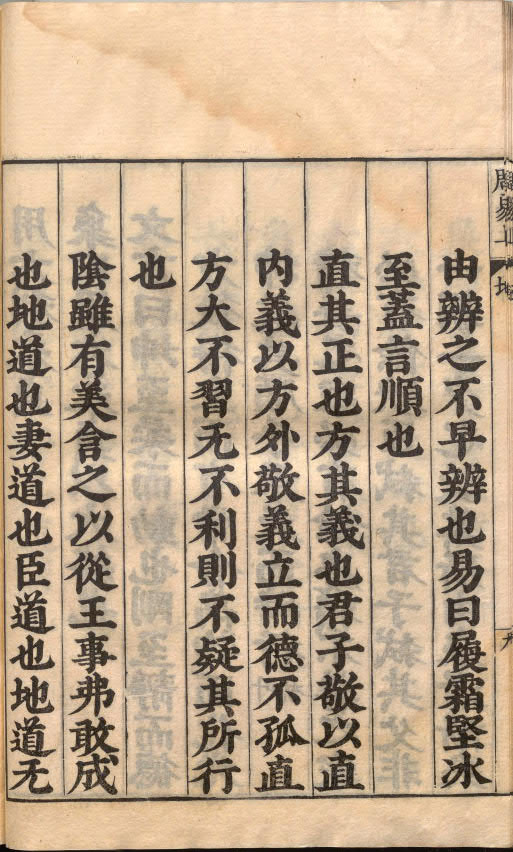 由辨之不早辨也易曰履霜堅冰
至蓋言順也
直其正也方其義也君子敬以直
内義以方外敬義立而德不孤直
方大不習无不利則不疑其所行
也
陰雖有美含之以從王事弗敢成
也地道也妻道也臣道也地道无